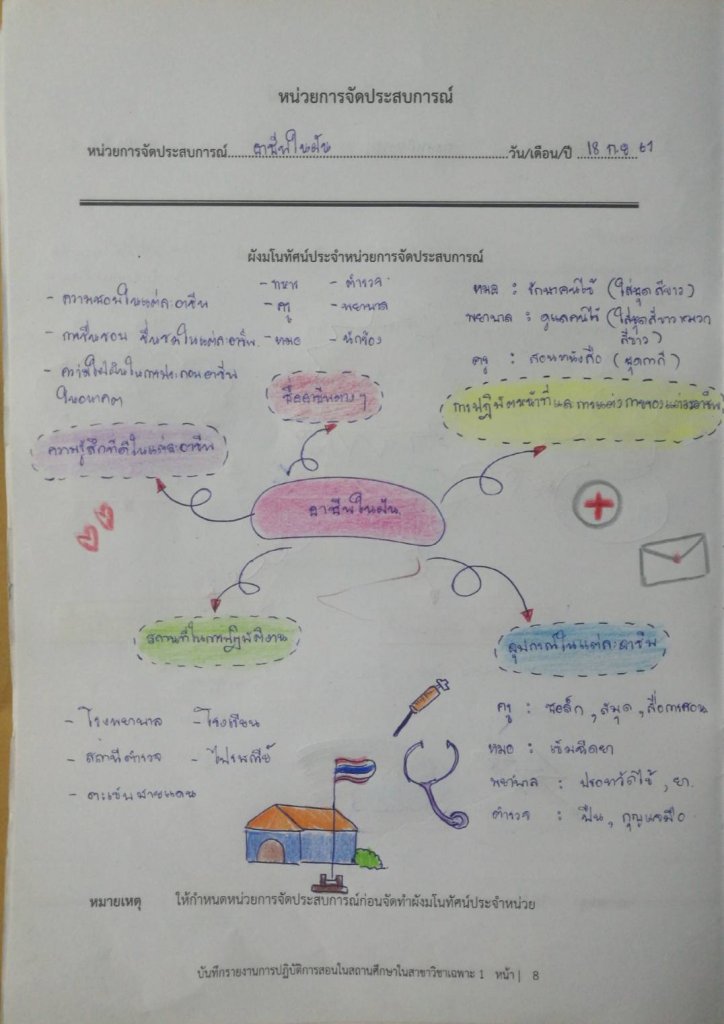 หน่วยการจัดประสบการณ์
หน่วยการจัดประสบการณ์ อาชีพในฝัน วัน/เดือน/ปี 18 ก.ย 61
ผังมโนทัศน์ประจำหน่วยการจัดประสบการณ์
- ความชอบในแต่ละอาชีพ
- การชื่นชอบ ชื่นชมในแต่ละอาชีพ
- ความใฝ่ฝันในการประกอบอาชีพ
ในอนาคต
ความรู้สึกที่ดีในแต่ละอาชีพ
- ทหาร - ตำรวจ
- ครู - พยาบาล
- หมอ - นักร้อง
ชื่ออาชีพต่างๆ
หมอ : รักษาคนไข้ (ใส่ชุดสีขาว)
พยาบาล : ดูแลคนไข้ (ใส่ชุดสีขาวหมวก
สีขาว)
ครู : สอนหนังสือ (ชุดกากี)
การปฏิบัติหน้าที่และการแต่งกายของแต่ละอาชีพ
อาชีพในฝัน
สถานที่ในการปฏิบัติงาน
- โรงพยาบาล - โรงเรียน
- สถานีตำรวจ - ไปรษณีย์
- ตะเข็บชายแดน
อุปกรณ์ในแต่ละอาชีพ
ครู : ชอล์ก , สมุด , สื่อการสอน
หมอ : เข็มฉีดยา
พยาบาล : ปรอทวัดไข้ , ยา
ตำรวจ : ปืน , กุญแจมือ
หมายเหตุ ให้กำหนดหน่วยการจัดประสบการณ์ก่อนจัดทำผังมโนทัศน์ประจำหน่วย
บันทึกรายงานการปฏิบัติการสอนในสถานศึกษาในสาขาวิชาเฉพาะ 1 หน้า | 8